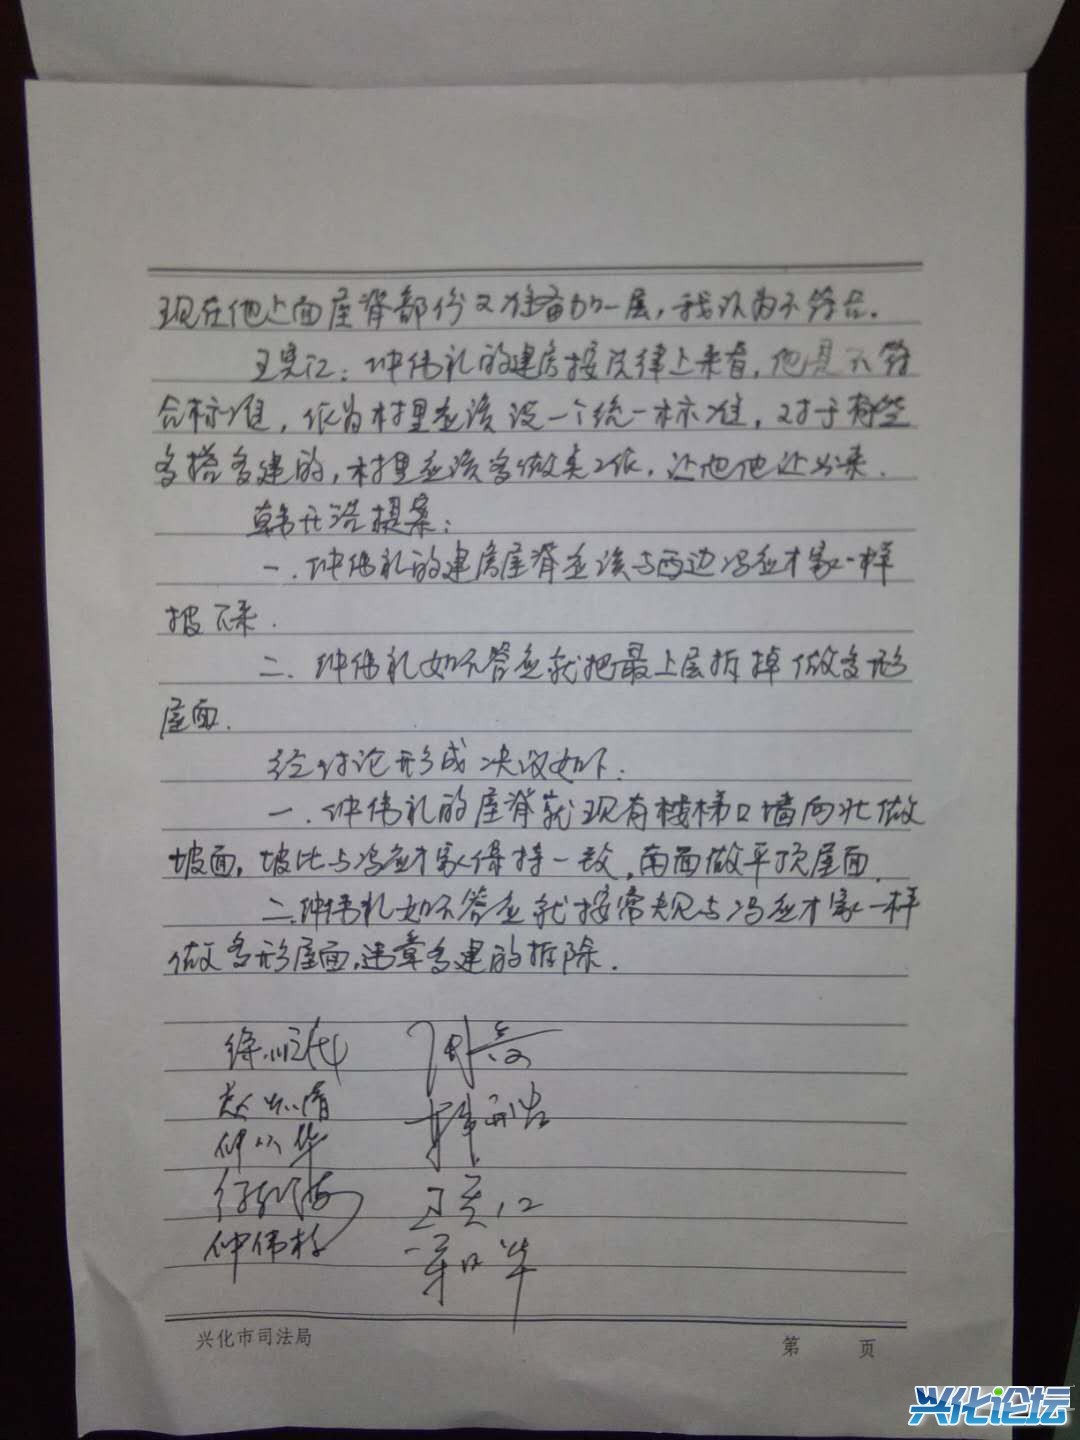 现在他上面屋脊部份又准备加一层，我认为不符合。
王英江：仲伟礼的建房按法律上来看，他是不符
合标准，作为村里应该设一个统一标准，对于有些
多搭多建的，村里应该多做类工作，让他让出来．
韩开浩提案：
一．仲伟礼的建房屋脊应该与西边冯应才家一样
披下来．
二．仲伟礼如不答应就把最上层拆掉做多形
屋面．
经讨论形成决议如下：
一．仲伟礼的屋脊就现有楼梯口墙向北做
坡面，坡比与冯应才家保持一致，南面做平顶屋面．
二．仲伟礼如不答应就按常规与冯应才家一样
做多形屋面，违章多建的拆除．
仲伟
兴化市司法局
第 页
兴化论坛